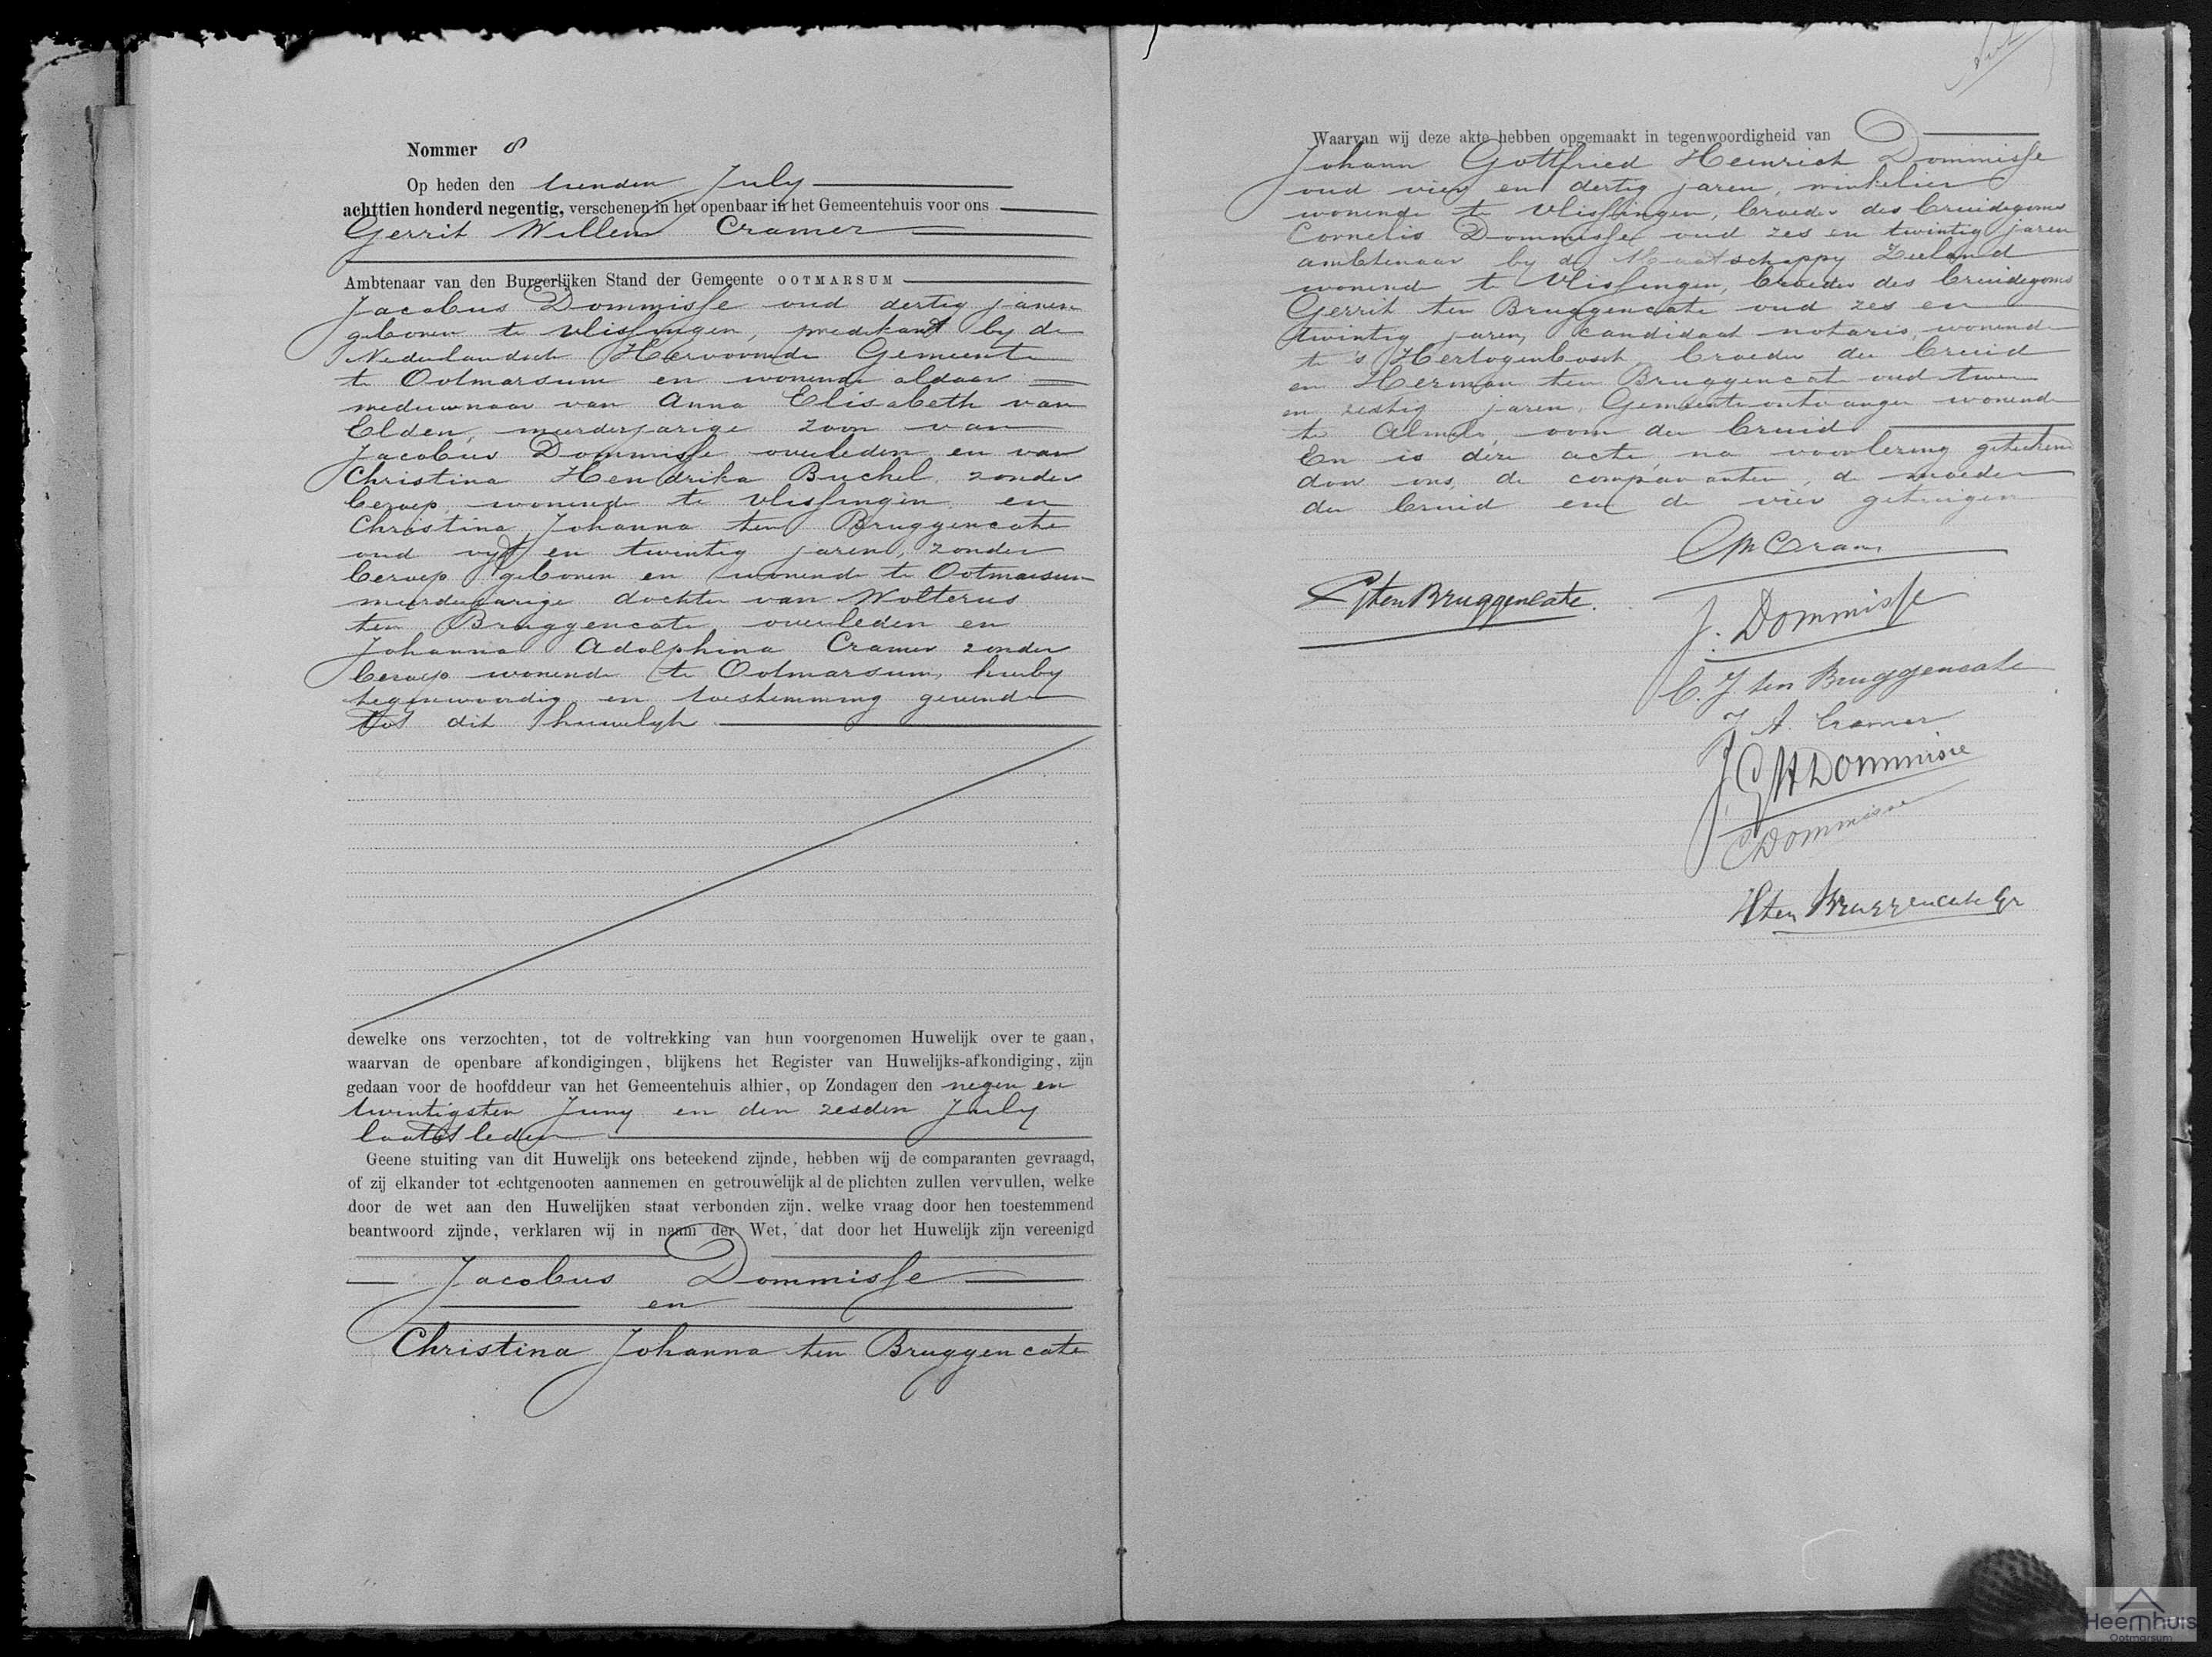 Nommer 8
Op heden den tienden July
achttien honderd negentig, verschenen in het openbaar in het Gemeentehuis voor ons
Gerrit Willem Cramer
Ambtenaar van den Burgerlijken Stand der Gemeente OOTMARSUM
Jacobus Dommisse oud dertig jaren
geboren te Vlissingen, predikant by de
Nederlandsch Hervormde Gemeente
te Ootmarsum en wonende aldaar
weduwnaar van Anna Elisabeth van
Elden, meerderjarige zoon van
Jacobus Dommisse overleden en van
Christina Hendrika Buchel, zonder
beroep wonende te Vlissingen en
Christina Johanna ten Bruggencate
oud vyf en twintig jaren, zonder
beroep geboren en wonende te Ootmarsum
meerderjarige dochter van Wolterus
ten Bruggencate overleden en
Johanna Adolphina Cramer zonder
beroep wonende te Ootmarsum, hierby
tegenwoordig en toestemming gevende
tot dit huwelyk
dewelke ons verzochten, tot de voltrekking van hun voorgenomen Huwelijk over te gaan,
waarvan de openbare afkondigingen, blijkens het Register van Huwelijks-afkondiging, zijn
gedaan voor de hoofddeur van het Gemeentehuis alhier, op Zondagen den negen en
twintigsten Juny en den zesden July
laatstleden
Geene stuiting van dit Huwelijk ons beteekend zijnde, hebben wij de comparanten gevraagd,
of zij elkander tot echtgenooten aannemen en getrouwelijk al de plichten zullen vervullen, welke
door de wet aan den Huwelijken staat verbonden zijn, welke vraag door hen toestemmend
beantwoord zijnde, verklaren wij in naam der Wet, dat door het Huwelijk zijn vereenigd
Jacobus Dommisse
en
Christina Johanna ten Bruggencate
Waarvan wij deze akte hebben opgemaakt in tegenwoordigheid van
Johann Gottfried Heinrich Dommisse
oud vier en dertig jaren, winkelier
wonende te Vlissingen, broeder des bruidegoms
Cornelis Dommisse oud zes en twintig jaren
ambtenaar by de Maatschappy Zeeland
wonend te Vlissingen, broeder des bruidegoms
Gerrit ten Bruggencate oud zes en
twintig jaren, candidaat notaris, wonende
te 's Hertogenbosch broeder der bruid
en Herman ten Bruggencate oud twee
en zestig jaren, Gemeente ontvanger wonende
te Almelo, oom der bruid
En is deze acte, na voorlezing geteekend
door ons, de comparanten, de moeder
der bruid en de vier getuigen
GWCramer
GtenBruggencate.
J. Dommisse
C. J. ten Bruggencate
J A Cramer
J G H Dommisse
C Dommisse
H ten Bruggencate Gz
Heemhuis
Ootmarsum